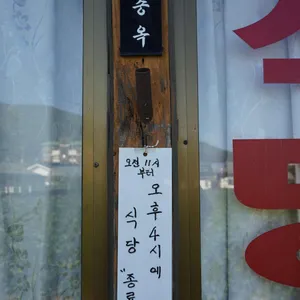 종옥
오전 11시
부터
오후 4시에
식당
"종료